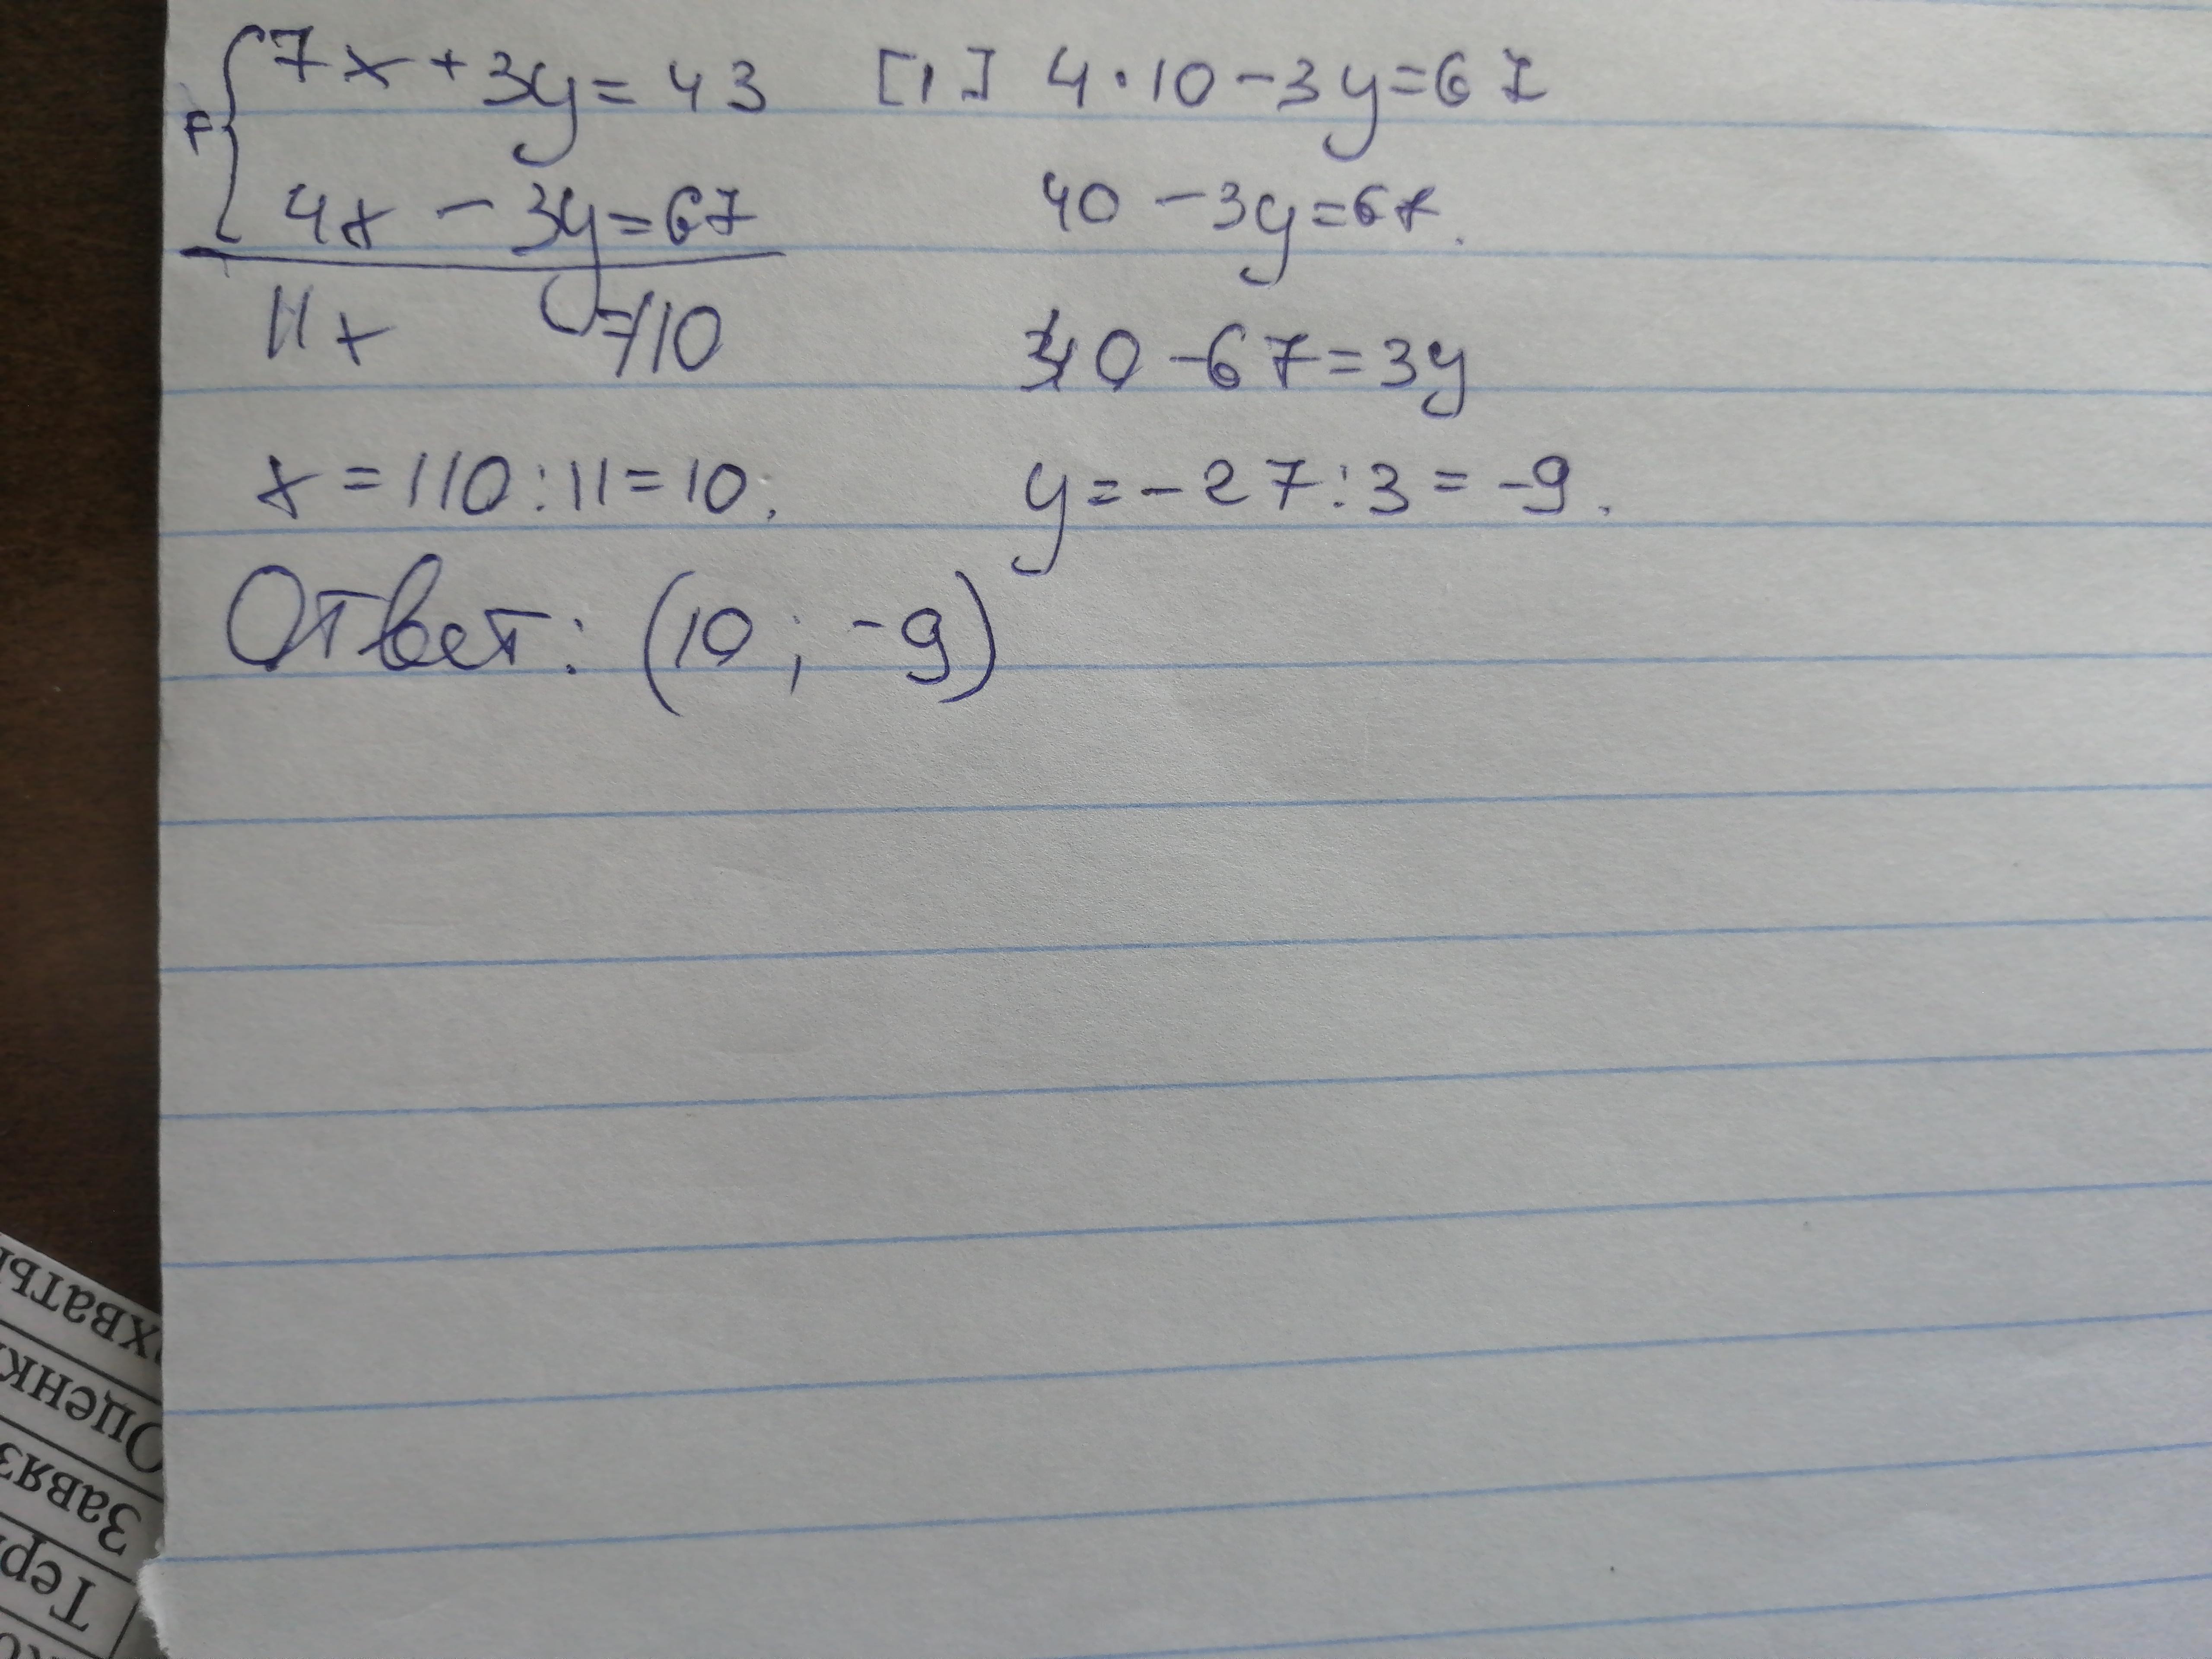 7x + 3y = 43
4x - 3y = 67
11x = 110
x = 110 : 11 = 10.
[1] 4 · 10 - 3y = 67
40 - 3y = 67.
40 - 67 = 3y
y = - 27 : 3 = -9.
Ответ: (10 ; -9)
Оценк
Завяз
Тер